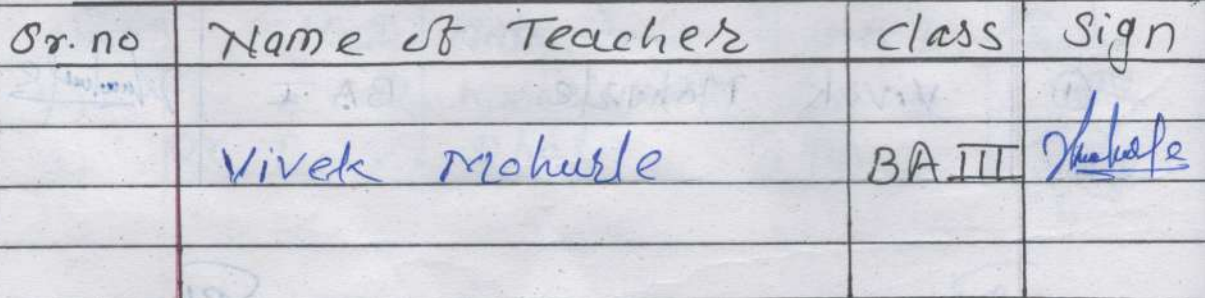 Sr. no Name of Teacher class Sign
Vivek Mohurle BA III Mohurle